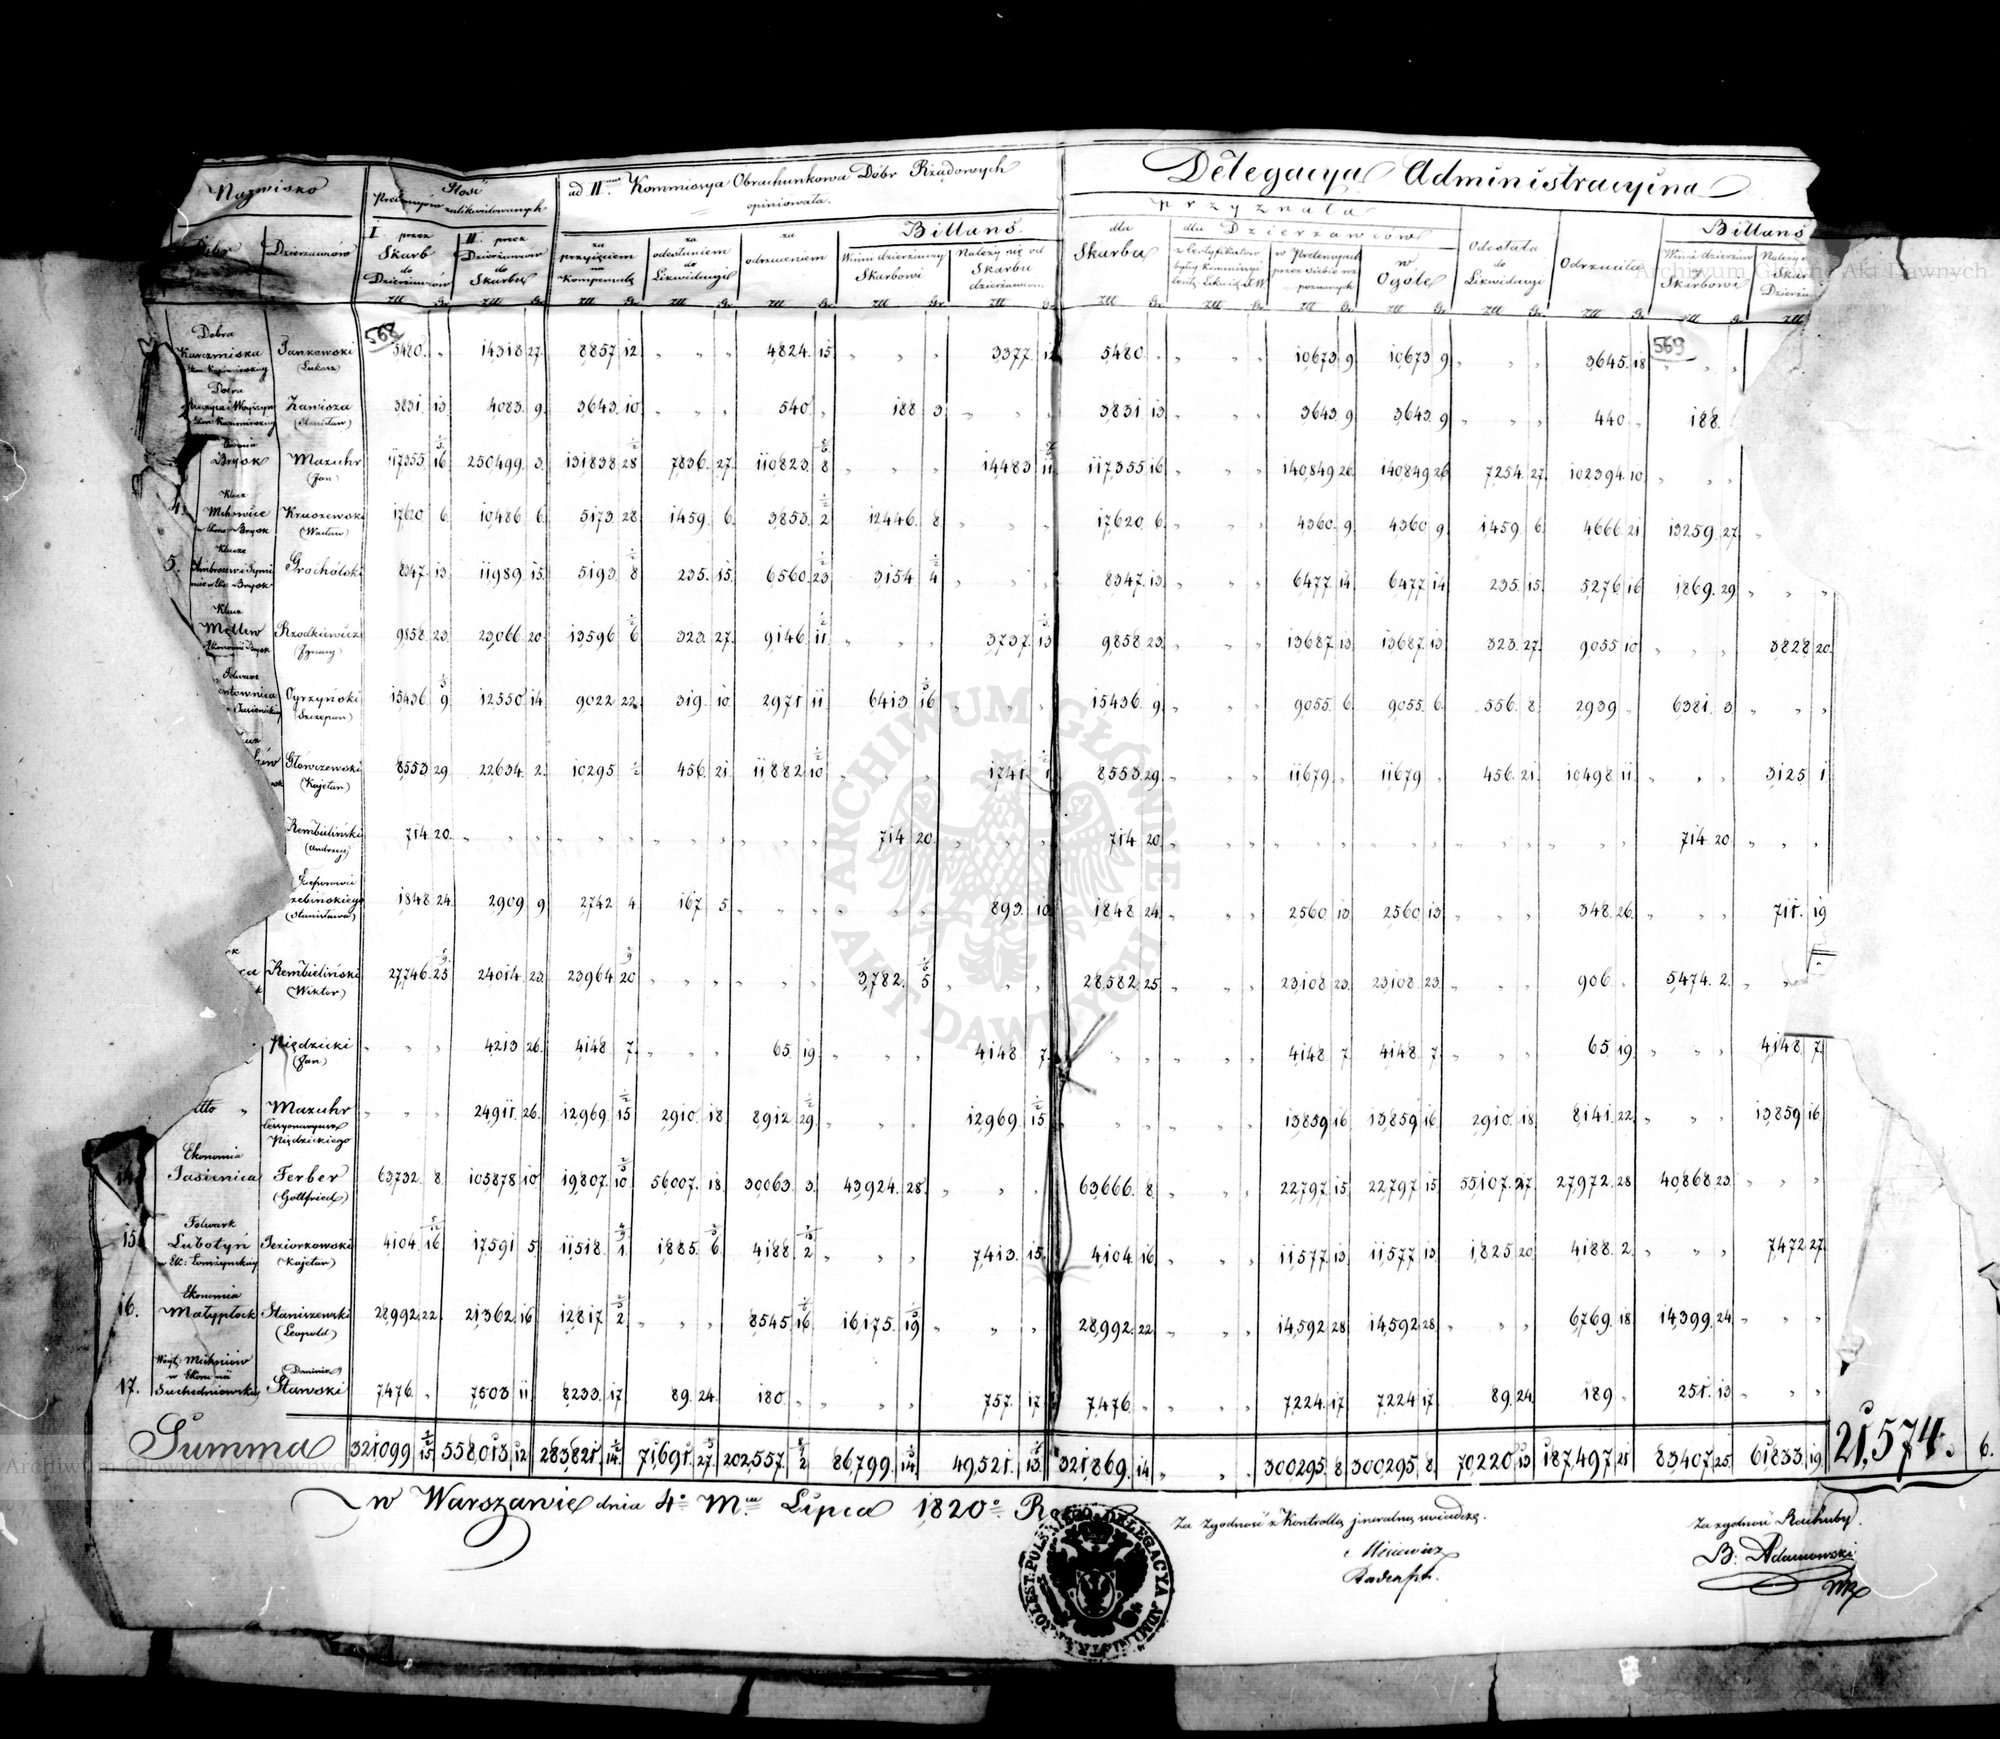 Nazwisko
Ilość
Pretensyów zalikwidowanych
ad II. Kommissya Obrachunkowa Dóbr Rządowych
opiniowała.
Delegacya Administracyina
przyznała
Dóbr
Dzierżawców
I. przez Skarb do Dzierżawców
II. przez Dzierżawców do Skarbu
za przyjęciem na Kompensatę
za odesłaniem do Likwidacyi
za odrzuceniem
Billans
Winni dzierżawcy Skarbowi
Należy się od Skarbu dzierżawcom
dla Skarbu
dla Dzierżawców
w Ogóle
Odesłała do Likwidacyi
Odrzuciła
Billans
Winni dzierżaw Skarbowi
Należy
568
569
Dobra Karczmiska Jankowski (Łukasz) 5480. 14318 27. 8857 12 4824. 15. 3377. 12 5480. 10673 9 10673 9 3645. 18
Dobra Zawisza (Stanisław) 3831. 13. 4083. 9. 3643. 10 540. 188 3 3831 13 3643. 9 3643. 9 440. 188.
Brysk Mazuhr (Jan) 117355 16 250499. 3. 131838 28 7836. 27. 110823. 8 14483 11 117355 16 140849 26 140849 26 7254. 27. 102394. 10
4. Klucz Kruszewski (Wacław) 17620 6 10486 6 5173 28 1459. 6. 3853. 2 12446. 8 17620. 6. 4360. 9 4360. 9 1459 6 4666. 21 13259 27
5. Klucze Grochólski 8347. 13. 11989 15. 5193. 8 235. 15. 6560. 23 3154 4 8347. 13. 6477 14 6477 14 235. 15. 5276 16 1869. 29
Klucz Rzodkiewicz (Ignacy) 9858. 23. 23066 20. 13596 6 323. 27. 9146. 11. 3737. 13 9858 23. 13687. 13. 13687. 13 323. 27. 9055 10 3828 20.
Folwark Oyrzyński (Szczepan) 15436 9 12550 14 9022 22. 319. 10 2971 11 6413 16 15436. 9. 9055. 6 9055. 6. 556. 8 2939 6381. 3
Główczewski (Kajetan) 8553 29. 22634 2. 10295. ½ 456. 21. 11882 10 1741 1 8553 29 11679. 11679 456. 21. 10498. 11. 3125 1
Rembieliński (Andrzey) 714. 20. 714 20. 714 20. 714. 20
(Stanisława) 1848 24. 2909. 9 2742 4 167. 5 893. 10 1848 24. 2560. 13 2560 13 348. 26. 711. 19
Rembieliński (Wiktor) 27746. 25 24014 23. 23964 20 3782. 5 28582. 25 23108 23. 23108. 23. 906. 5474. 2.
Piędzicki (Jan) 4213 26. 4148 7. 65. 19. 4148. 7 4148. 7 4148. 7. 65. 19. 4148. 7.
Ditto Mazuhr Piędzickiego 24911. 26. 12969. 15 2910. 18 8912. 29. 12969. 15 13859 16 13859 16. 2910. 18 8141. 22. 13859 16.
14. Ekonomia Jasienica Ferber (Gottfried) 63732. 8 105878 10 19807. 10 56007. 18 30063. 3. 43924. 28. 63666. 8 22797. 15 22797. 15 55107. 27. 27972. 28 40868 23.
15. Folwark Lubotyń Jeziorkowski (Kajetan) 4104. 16 17591 5. 11518. 1. 1885. 6 4188. 2 7413. 15. 4104. 16. 11577. 13 11577 13 1825 20 4188. 2. 7472 27.
16. Ekonomia Małypłock Staniszewski (Leopold) 28992. 22. 21362. 16 12817 2 8545. 16 16175. 19 28992. 22 14592 28 14592 28 6769. 18 14399. 24
17. Suchedniowskiey Dominik Sławski 7476. 7503 11 8233. 17 89. 24. 180. 757. 17 7476. 7224. 17 7224 17 89. 24. 189 251. 13
Summa 321099 15 558013. 12 283821. 14. 71691. 27. 202557. 2 86799. 14 49521. 13. 321869. 14 300295. 8 300295 8. 70220 13 187497 21 83407 25 61833. 19. 21574. 6.
w Warszawie dnia 4° Mca Lipca 1820° Ro
Za zgodność z Kontrollą jeneralną swiadczę.
Za zgodność Rachuby.
B. Adamowski
KROLEST. POLSKIEGO DELEGACYA ADMINISTR.
ARCHIWUM GŁÓWNE AKT DAWNYCH
Archiwum Główne Akt Dawnych
Archiwum Główne Akt Dawnych